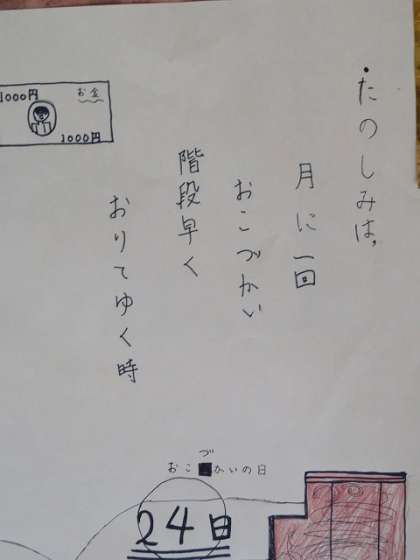 たのしみは、
月に一回
おこづかい
階段早く
おりてゆく時
1000円
お金
1000円
づ
おこ■かいの日
24日